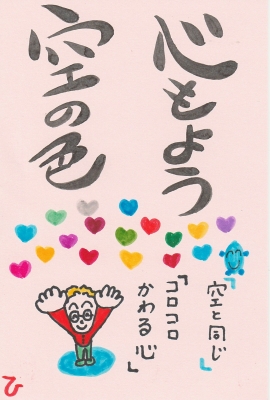 心もよう
空の色
「空と同じ」
「コロコロ
かわる心」
ひ